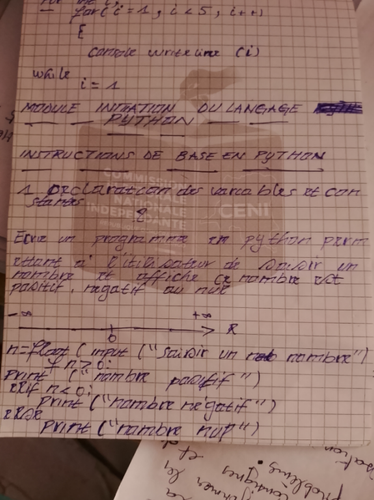 for( i = 1 , i < 5 , i++)
{
console writeline (i)
while
i = 1
MODULE INITIATION DU LANGAGE
PYTHON
INSTRUCTIONS DE BASE EN PYTHON
1 Declaration des variables et con
stantes
COMMISSION
NATIONALE
INDEPENDANTE
CENI
Ecrire un programme en python perm
ettant à l'utilisateur de saisir un
nombre et affiche ce nombre est
positif, negatif ou nul
-∞ +∞
0 R
n=float (input ("saisir un nombre")
if n > 0:
print ("nombre positif")
elif n < 0:
print ("nombre négatif")
else
print ("nombre nul")